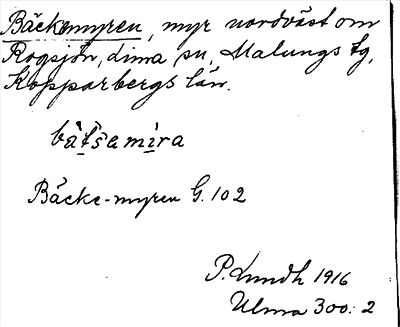 Bäckemyren, myr nordväst om
Rogsjön, Lima sn, Malungs tg,
Kopparbergs län.
bä̀t́šamìra
Bäcke-myren G. 102
P. Lundh 1916
Ulma 300: 2